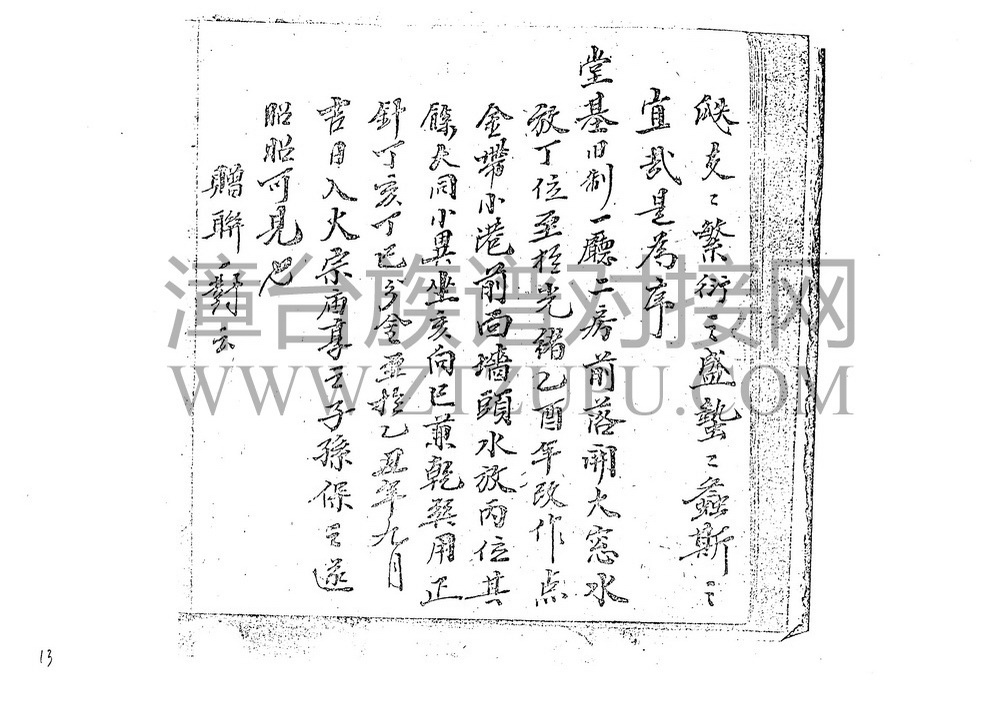 瓞爰〻繁衍之盛蟄〻螽斯之
宜哉是為序
堂基旧制一廳二房前落開大窓水
放丁位至於光緒乙酉年改作点
金帶小港前面墻頭水放丙位其
餘大同小異坐亥向巳兼乾巽用正
針丁亥丁巳分金至於乙丑年九月
吉日入火宗庙享之子孫保之遂
昭昭可見也
贈聯對云
漳台族谱对接网
WWW.ZTZUPU.COM
13